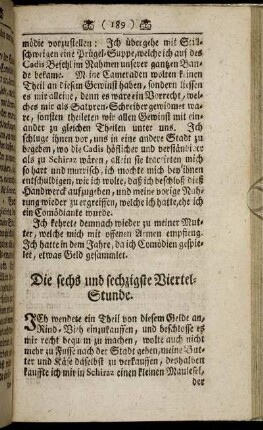 ( 189 )
mödie vorzustellen: Ich übergehe mit Still-
schweigen eine Prügel-Suppe, welche ich auf des
Cadis Befehl im Nahmen unserer gantzen Ban-
de bekame. Meine Cameraden wolten keinen
Theil an diesem Gewinst haben, sondern liessen
es mir alleine, denn es ware ein Vorrecht, wel-
ches mir als Satyren-Schreiber gewidmet wa-
re, sonsten theileten wir allen Gewinst mit ein-
ander zu gleichen Theilen unter uns. Ich
schluge ihnen vor, uns in eine andere Stadt zu
begeben, wo die Cadis höflicher und verständiger
als zu Schiraz wären, allein sie tractirten mich
so hart und murrisch, ich mochte mich bey ihnen
entschuldigen, wie ich wolte, daß ich beschloß dieß
Handwerck aufzugeben, und meine vorige Nah-
rung wieder zu ergreiffen, welche ich hatte, ehe ich
ein Comödiante wurde.
Ich kehrete demnach wieder zu meiner Mut-
ter, welche mich mit offenen Armen empfieng.
Ich hatte in dem Jahre, da ich Comödien gespie-
let, etwas Geld gesammlet.
Die sechs und sechzigste Viertel-
Stunde.
ICh wendete ein Theil von diesem Gelde an,
Rind-Vieh einzukauffen, und beschlosse es
mir recht bequem zu machen, wolte auch nicht
mehr zu Fusse nach der Stadt gehen, meine But-
ter und Käse daselbst zu verkauffen, deshalben
kauffte ich mir in Schiraz einen kleinen Maulesel,
der